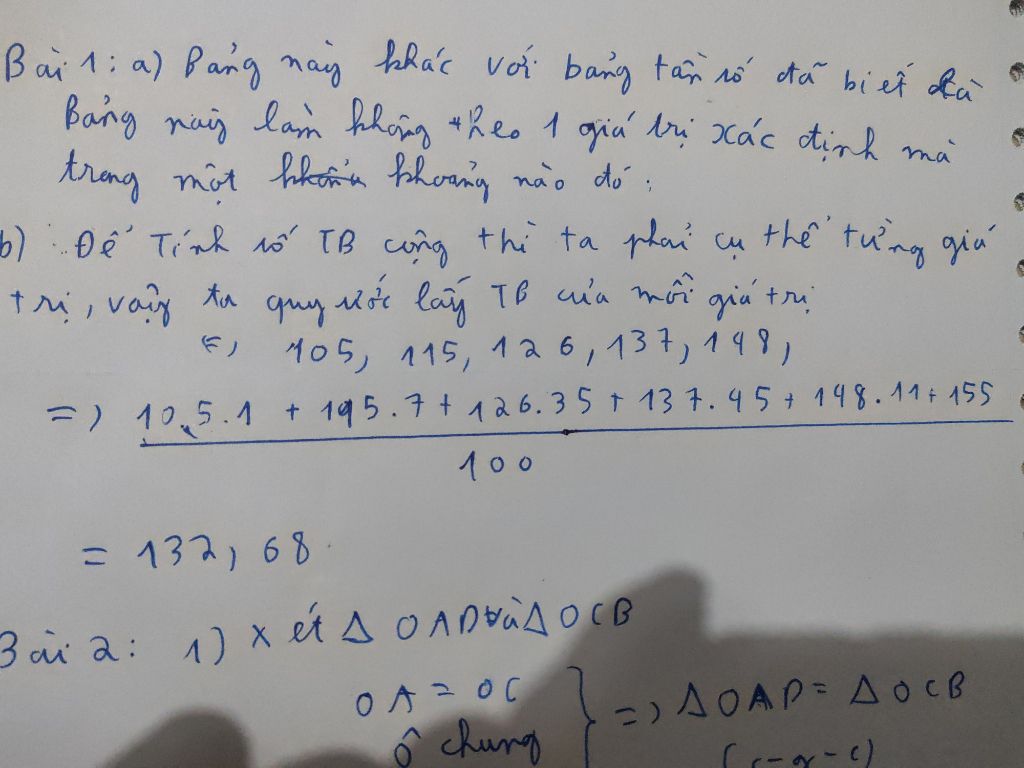 Bài 1: a) Bảng này khác với bảng tần số đã biết là
Bảng này làm không theo 1 giá trị xác định mà
trong một khoảng nào đó.
b) Để Tính số TB cộng thì ta phải cụ thể từng giá
trị, vậy ta quy ước lấy TB của mỗi giá trị
105, 115, 126, 137, 148,
=> 10.5.1 + 195.7 + 126.35 + 137.45 + 148.11 + 155
100
= 132,68
Bài 2: 1) xét Δ OAD và Δ OCB
OA = OC
Ô chung } => Δ OAD = Δ OCB
(c-g-c)